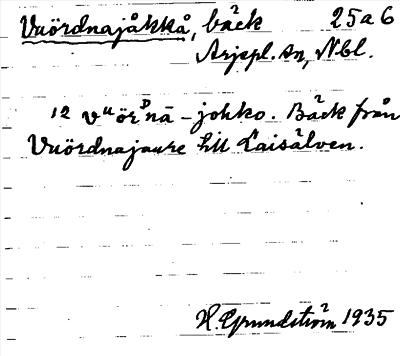 Vuördnajåkkå, bäck 25a6
Arjepl. sn, Nbl.
12 vᵘörᴰnā-johko. Bäck från
Vuördnajaure till Laisälven.
H. Grundström 1935